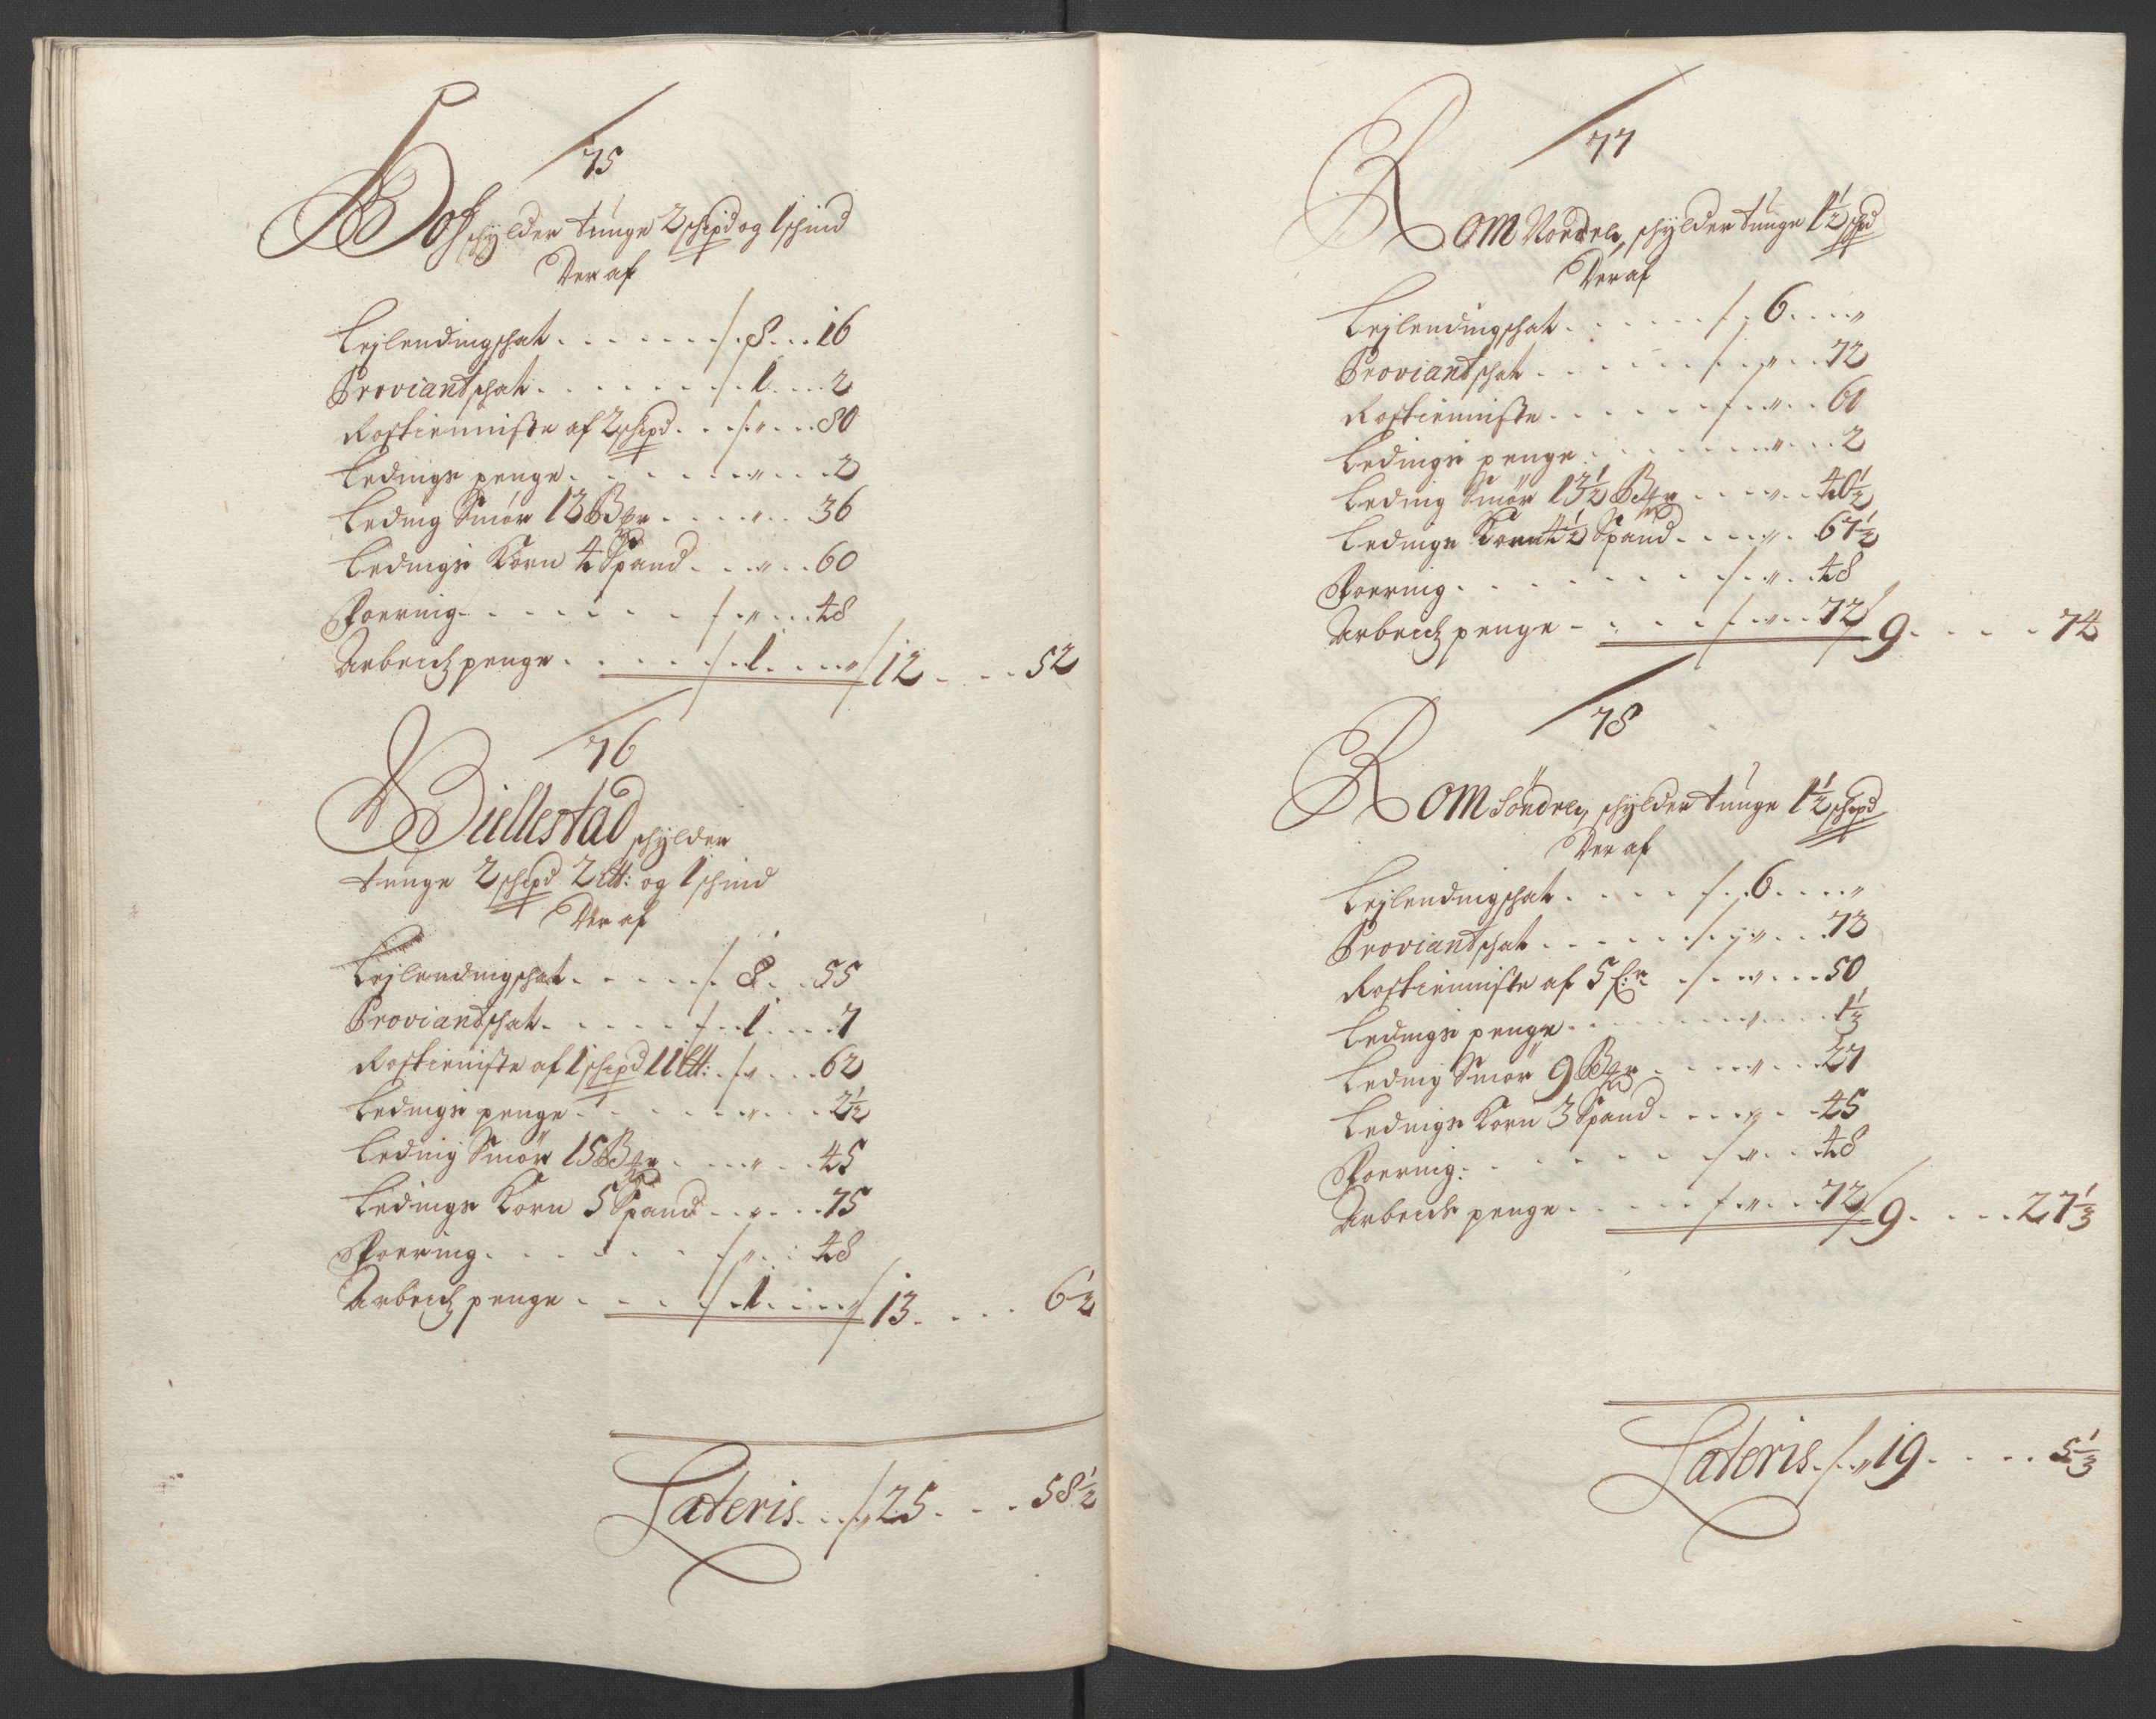 75
Boe schylder tunge 2 schpd og 1 schind
Der af
Lejlendingschat . . . . . . . / . 8 . . . 16
Proviantschat . . . . . . . / . 1 . . . 2
Rostienniste af 2 schpd . . . / . " . . . 80
Ledings penge . . . . . . . " . . . 2
Leding Smör 12 Bpr . . . . " . . 36
Ledings Korn 4 Spand . . . " . . 60
Foering . . . . . . . / . " . . . 48
Arbeidz penge . . . . . . / . 1 . . . . " / 12 . . . . 52
76
Biellestad schylder
tunge 2 schpd 2 Lt: og 1 schind
Der af
Lejlendingschat . . . . . / . 8 . . 55
Proviantschat . . . . . . / . 1 . . . 7
Rostienniste af 1 schpd 11 Lt: . / . " . . . 62
Ledings penge . . . . . . " . . . 2½
Leding Smör 15 Bpr . . . . " . . 45
Ledings Korn 5 Spand . . . " . . . 75
Foering . . . . . . . / . " . . 48
Arbeidz penge . . . . / . 1 . . . . " / 13 . . . . 6½
Lateris . . . / " 25 . . . 58½
77
Rom Nordre, schylder tunge 1½ schpd
Der af
Lejlendingschat . . . . . . / . 6 . . . . "
Proviantschat . . . . . . / . " . . 72
Rostienniste . . . . . . . / . " . . 60
Ledings penge . . . . . . . " . . . 2
Leding Smör 13½ Bpr . . . . " . . 40½
Ledings Korn 4½ Spand . . . . " . . 67½
Foering . . . . . . . . / . " . . 48
Arbeidz penge . . . . . / . " . . 72 / 9 . . . . . 74
78
Rom Söndre, schylder tunge 1½ schpd
Der af
Lejlendingschat . . . . . / . 6 . . . . "
Proviantschat . . . . . . / . " . . . 72
Rostienniste af 5 . / . " . . . 50
Ledings penge . . . . . . . . " . . . . 1⅓
Leding Smör 9 Bpr . . . . . " . . . 27
Ledings Korn 3 Spand . . . . " . . 45
Foering . . . . . . . . / . " . . 48
Arbeids penge . . . . . . / . " . . . 72 / 9 . . . . 27⅓
Lateris . / . " 19 . . . . . 5⅓